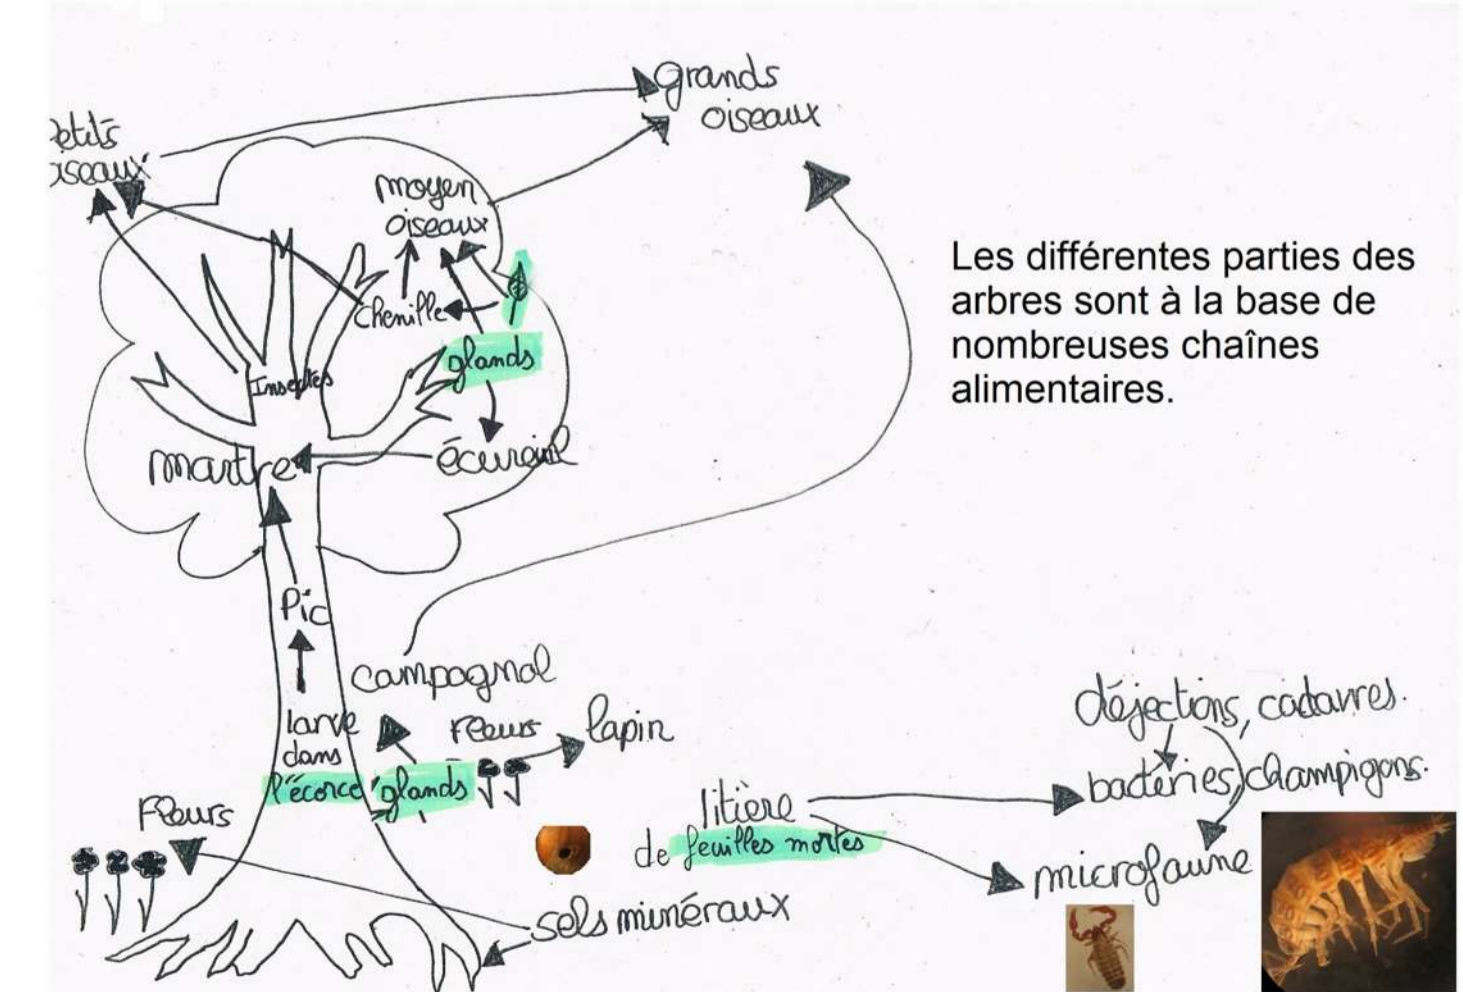 grands
oiseaux
etits
iseaux
moyen
oiseaux
chenille
glands
Insectes
écureuil
martre
Les différentes parties des
arbres sont à la base de
nombreuses chaînes
alimentaires.
Pic
campagnol
larve
dans
l'écorce
glands
Fleurs
lapin
Fleurs
litière
de feuilles mortes
sels minéraux
déjections, cadavres.
bactéries, champignons.
microfaune